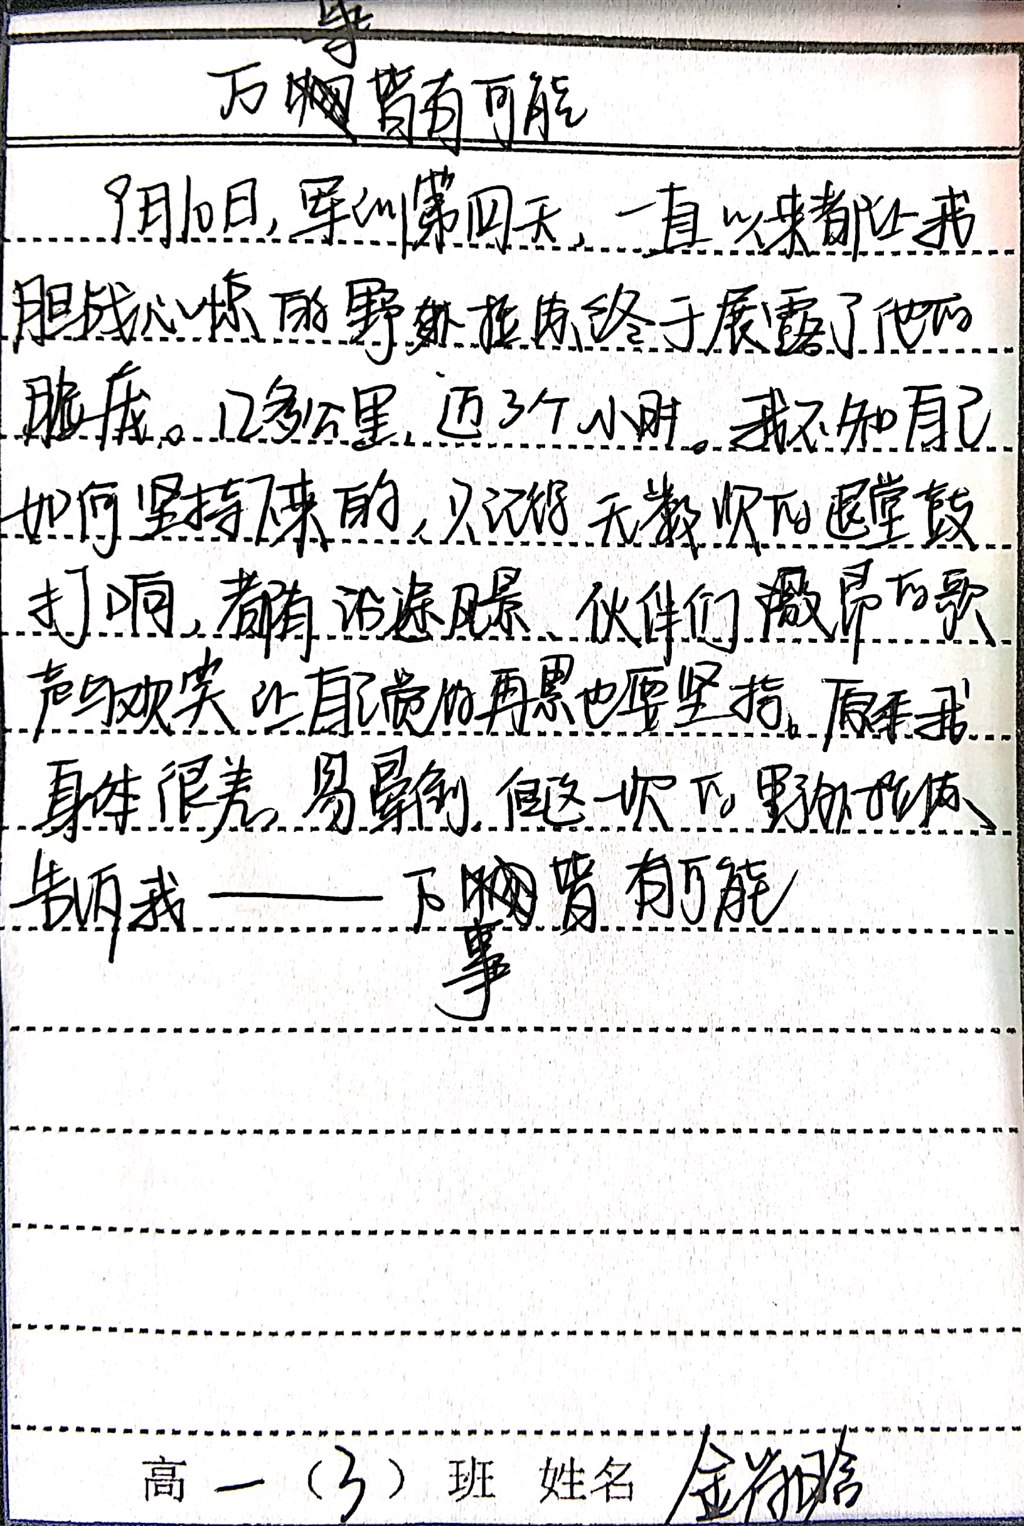 万事皆有可能
9月10日,军训第四天,一直以来都让我
胆战心惊的野外拉练终于展露了他的
脸庞。12多公里,近3个小时。我不知自己
如何坚持下来的,只记得无数次的退堂鼓
打响,都有沿途风景、伙伴们激昂的歌
声与欢笑让自己觉的再累也要坚持。原来我
身体很差,易晕倒,但这一次的野外拉练、
告诉我——万事皆有可能
高一(3)班 姓名 金